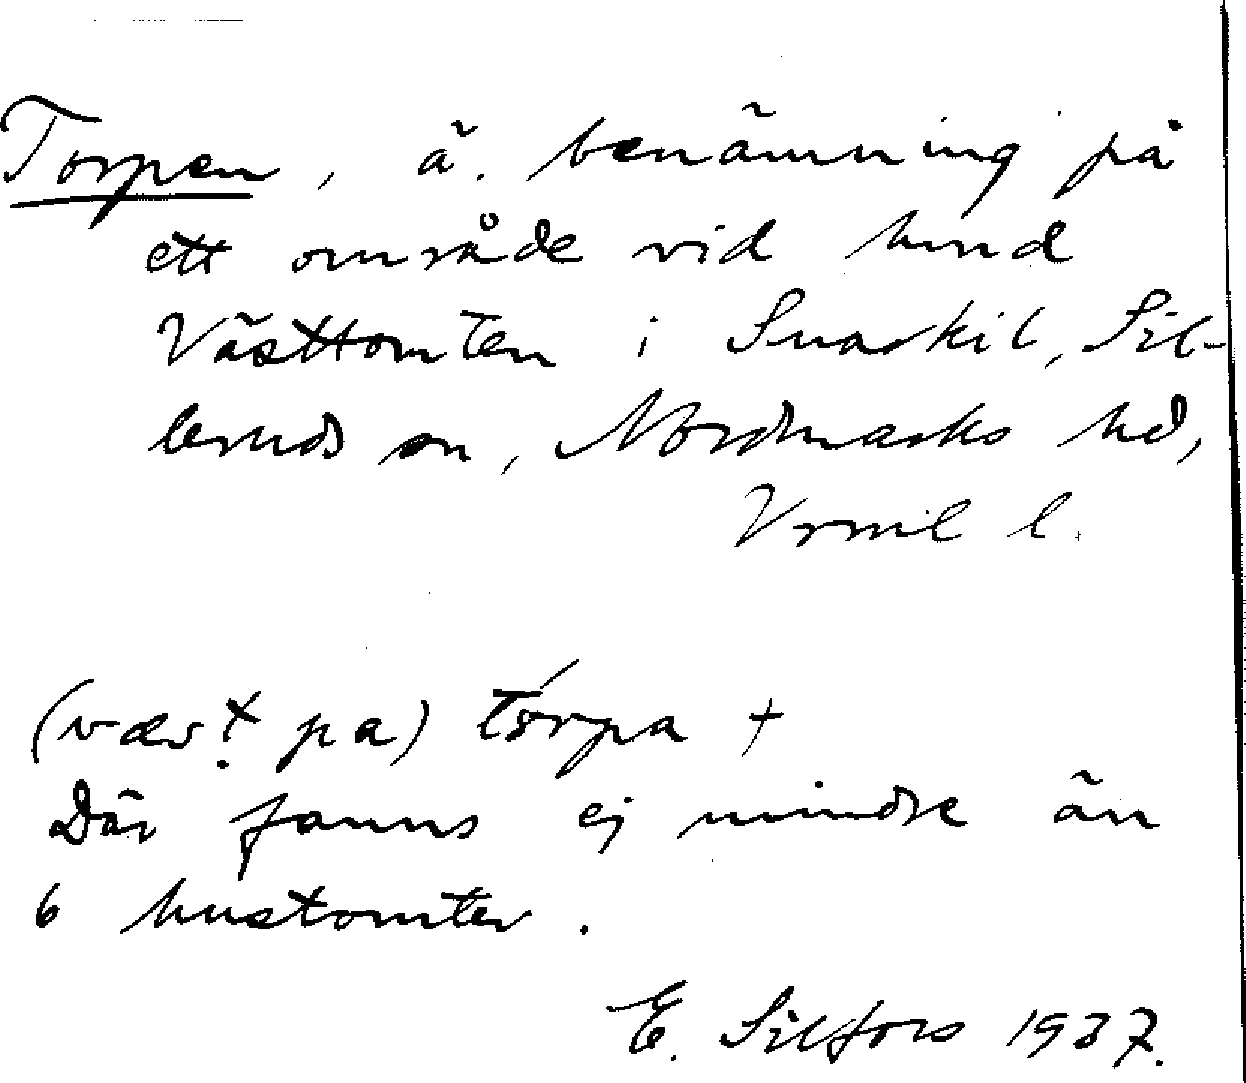 Torpen, ä. benämning på
ett område vid hmd
Västtomten i Snarkil, Sil-
leruds sn, Nordmarks hd,
Vrml l.
(væs.t pa) tórpa +
Där fanns ej mindre än
6 hustomter.
E. Silfors 1937.